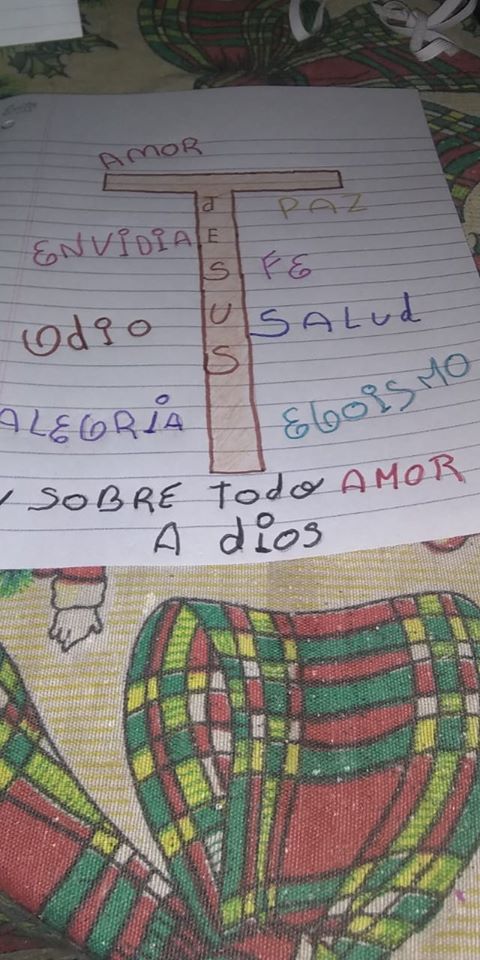 AMOR
PAZ
JESUS
ENVIDIA
FE
Odio
SALUd
ALEGRIA
EGOISMO
y SOBRE Todo AMOR
A diOS